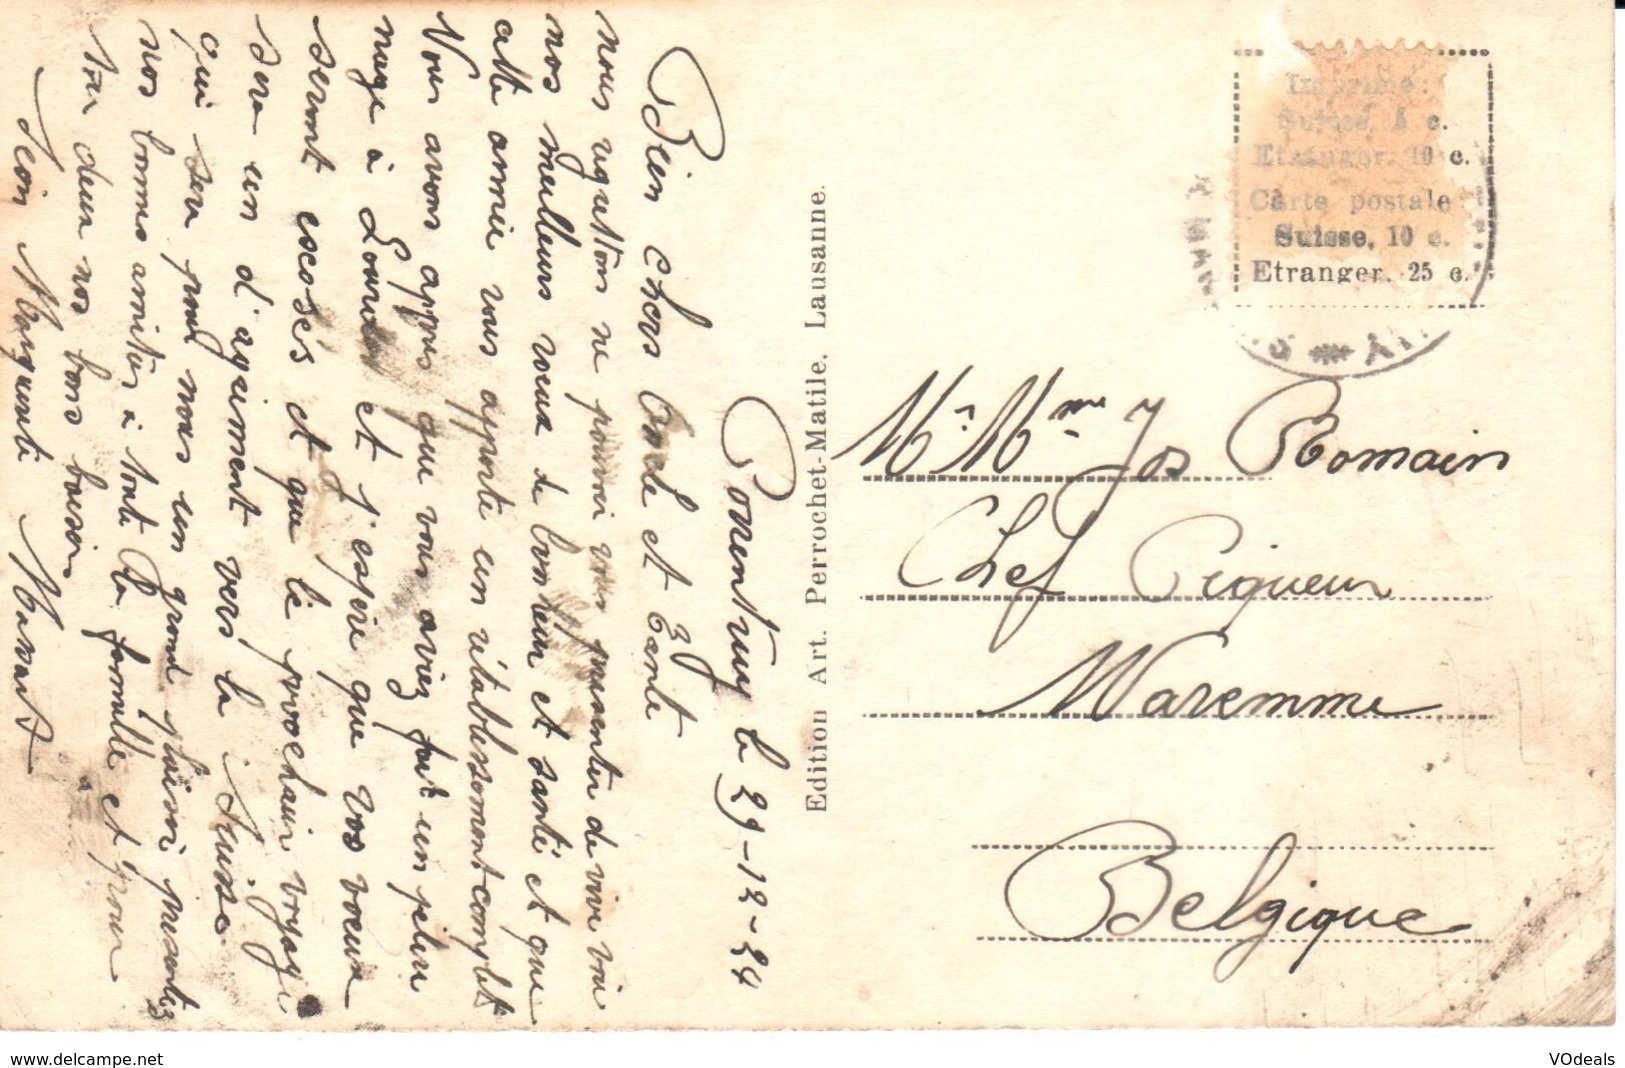 Porrentruy le 29-12-24
Bien chers Oncle et Tante
nous regrettons ne pouvoir vous presenter de vive voix
nos meilleurs voeux de bonheur et santé et que
cette année vous apporte un rétablissement complet
Vous avons appris que vous aviez fait un péleri
nage à Lourdes et j'espère que vos voeux
seront excosés et que le prochain voyage
sera un d'agriment vers la Suisse
qui sera pour nous un grand plaisir presentez
nos bonnes amitiés à toute la famille et pour
vous deux nos bons baisers
Léon Marguerite Massart
Edition Art. Perrochet-Matile. Lausanne.
Imprimé:
Suisse, 5 c.
Etranger. 10 c.
Carte postale:
Suisse, 10 c.
Etranger. 25 c.
Mr Mme Jos Romain
Chef Piqueur
Waremme
Belgique
www.delcampe.net
VOdeals